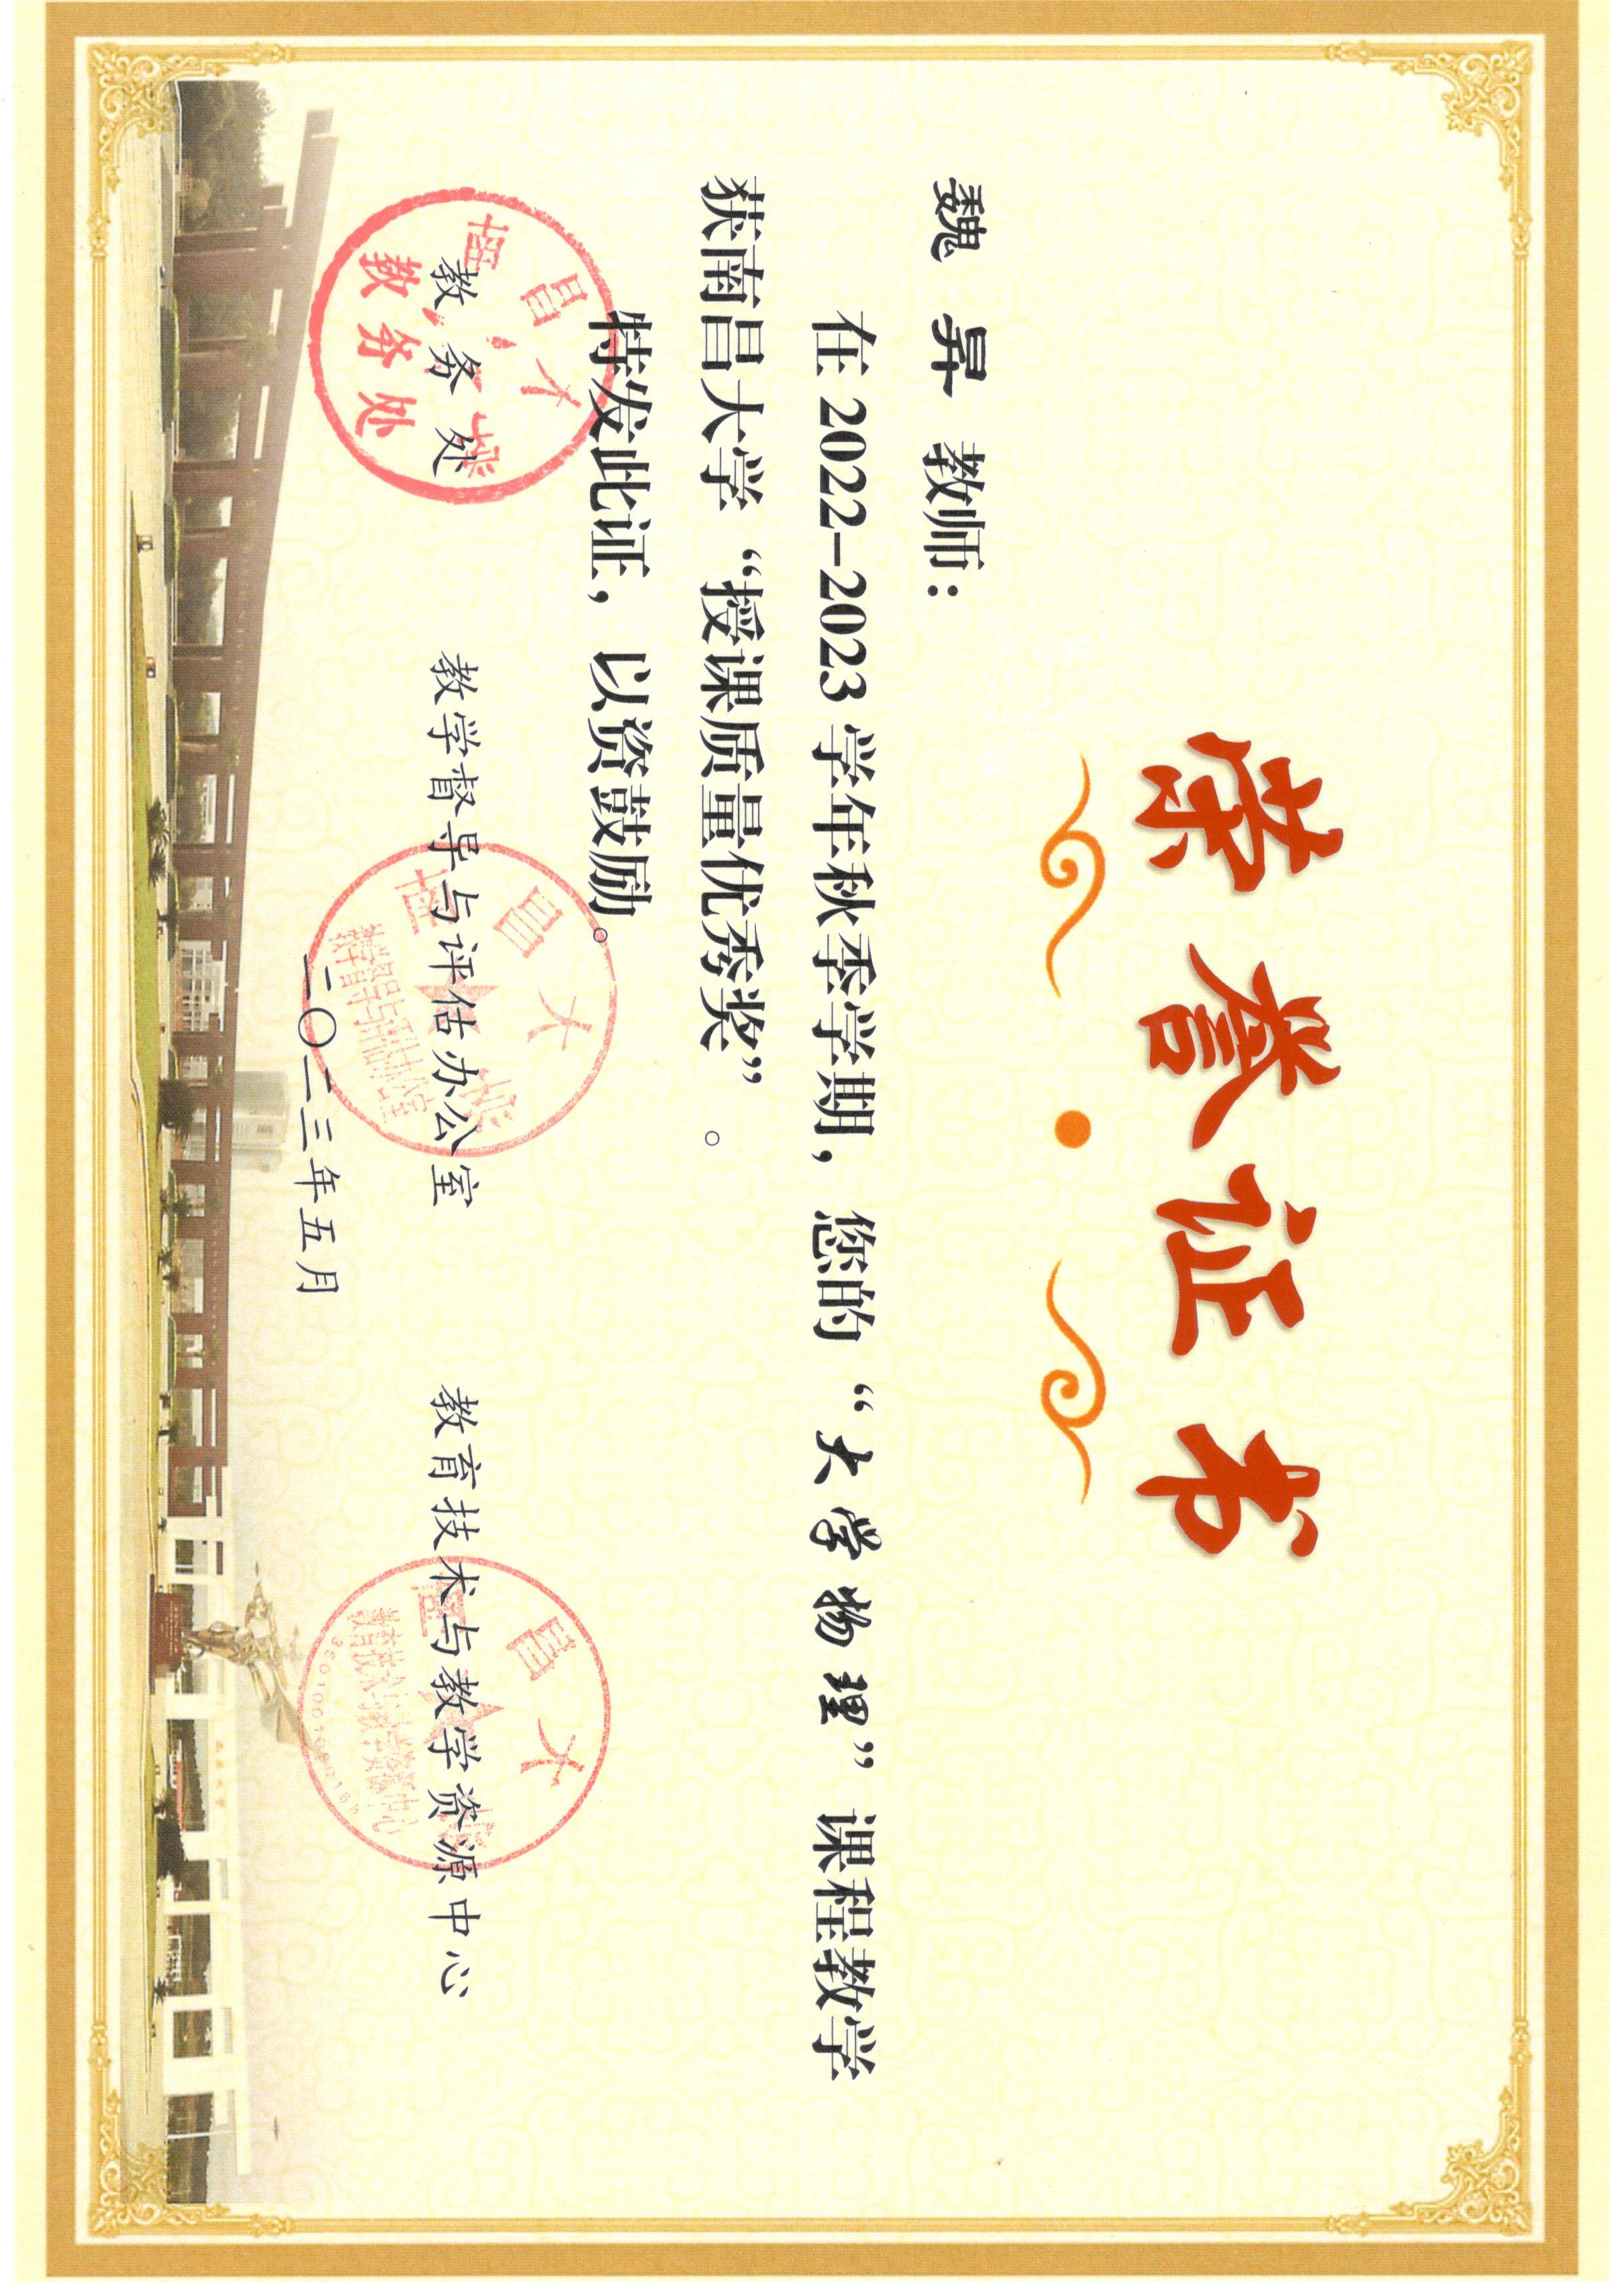 荣誉证书
魏昇 教师：
在 2022-2023 学年秋季学期，您的“大学物理”课程教学
获南昌大学“授课质量优秀奖”。
特发此证，以资鼓励。
教务处 教学督导与评估办公室 教育技术与教学资源中心
二〇二三年五月
南昌大学
教务处
南昌大学
教学督导与评估办公室
南昌大学
教育技术与教学资源中心